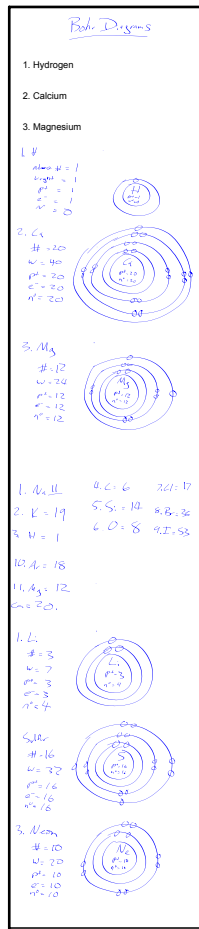 Bohr Diagrams
1. Hydrogen
2. Calcium
3. Magnesium
1. H
# = 1
weight = 1
p+ = 1
e- = 1
n° = 0
H
2. Ca
# = 20
w = 40
p+ = 20
e- = 20
n° = 20
Ca
p+ = 20
n° = 20
3. Mg
# = 12
w = 24
p+ = 12
e- = 12
n° = 12
Mg
p+ = 12
n° = 12
1. Na 11
4. C = 6
7. Cl = 17
2. K = 19
5. Si = 14
8. Br = 36
3. H = 1
6. O = 8
9. I = 53
10. Ar = 18
11. Mg = 12
Ca = 20.
1. Li
# = 3
w = 7
p+ = 3
e- = 3
n° = 4
Li
p+ = 3
n° = 4
Sulfur
# = 16
w = 32
p+ = 16
e- = 16
n° = 16
S
p+ = 16
n° = 16
3. Neon
# = 10
w = 20
p+ = 10
e- = 10
n° = 10
Ne
p+ = 10
n° = 10